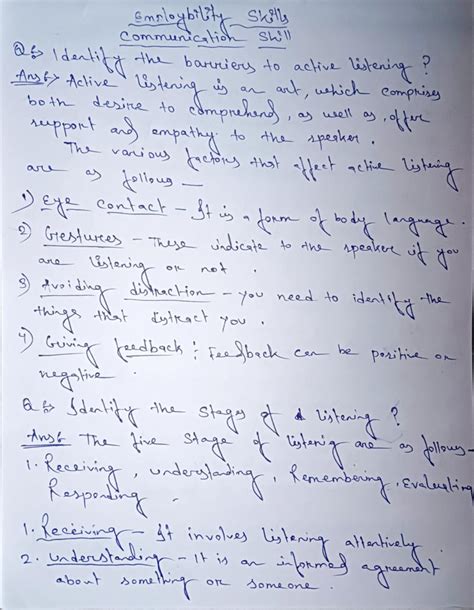 Employbility Skills
Communication Skill
Q5 Identify the barriers to active listening ?
Ans5 Active listening is an art, which comprises
both desire to comprehend, as well as, offer
support and empathy to the speaker.
The various factors that affect active listening
are as follows —
1) Eye contact – It is a form of body language.
2) Gestures – These indicate to the speaker if you
are listening or not.
3) Avoiding distraction – you need to identify the
things that distract you.
4) Giving feedback : Feedback can be positive or
negative
Q6 Identify the stages of listening ?
Ans6 The five stage of listenig are as follows–
1. Receiving, understanding, Remembering, Evaluating
Responding.
1. Receiving – It involves listening attentively
2. understanding – It is an informed agreement
about something or someone.